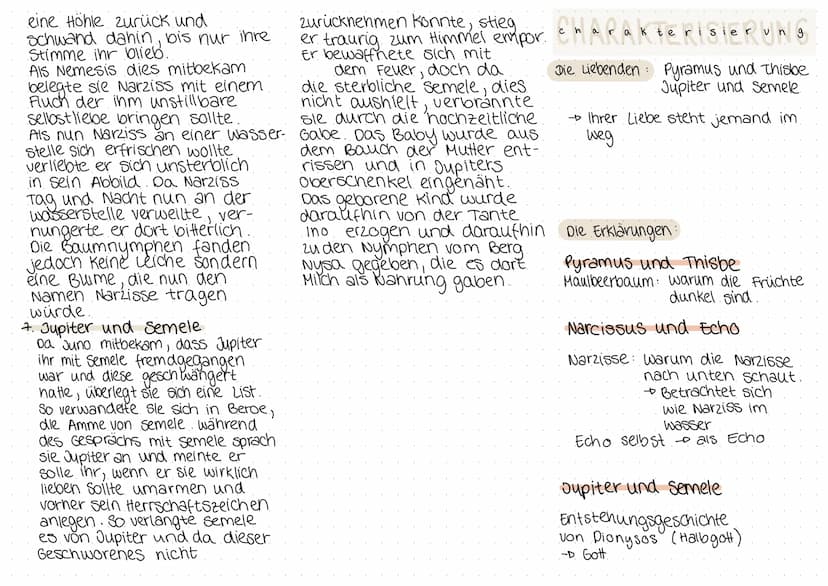 eine Höhle zurück und
schwand dahin, bis nur ihre
Stimme ihr blieb.
Als Nemesis dies mitbekam
belegte sie Narziss mit einem
Fluch der ihm unstillbare
selbstliebe bringen sollte.
Als nun Narziss an einer Wasser-
stelle sich erfrischen wollte
verliebte er sich unsterblich
in sein Abbild. Da Narziss
Tag und Nacht nun an der
Wasserstelle verweilte, ver-
hungerte er dort bitterlich.
Die Baumnymphen fanden
jedoch keine Leiche sondern
eine Blume, die nun den
Namen Narzisse tragen
würde.
7. Jupiter und Semele
Da Juno mitbekam, dass Jupiter
ihr mit Semele fremdgegangen
war und diese geschwängert
hatte, überlegt sie sich eine List.
So verwandete sie sich in Beroe,
die Amme von Semele. während
des Gesprächs mit Semele sprach
sie Jupiter an und meinte er
solle ihr, wenn er sie wirklich
lieben sollte umarmen und
vorher sein Herrschaftszeichen
anlegen. So verlangte Semele
es von Jupiter und da dieser
Geschworenes nicht
zurücknehmen konnte, stieg
er traurig zum Himmel empor.
Er bewaffnete sich mit
dem Feuer, doch da
die sterbliche Semele, dies
nicht aushielt, verbrannte
sie durch die hochzeitliche
Gabe. Das Baby wurde aus
dem Bauch der Mutter ent-
rissen und in Jupiters
Oberschenkel eingenäht.
Das geborene Kind wurde
daraufhin von der Tante
Ino erzogen und daraufhin
zu den Nymphen vom Berg
Nysa gegeben, die es dort
Milch als Nahrung gaben.
CHARAKTERISIERUNG
charakterisierung
Die Liebenden: Pyramus und Thisbe
Jupiter und Semele
→ Ihrer Liebe steht jemand im
Weg
Die Erklärungen:
Pyramus und Thisbe
Maulbeerbaum: warum die Früchte
dunkel sind.
Narcissus und Echo
Narzisse: warum die Narzisse
nach unten schaut.
→ Betrachtet sich
wie Narziss im
Wasser
Echo selbst → als Echo
Jupiter und Semele
Entstehungsgeschichte
von Dionysos (Halbgott)
→ Gott